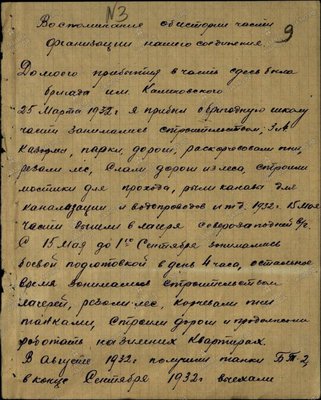 N3
9
Воспоминание об истории части
организации нашего соединения.
До моего прибытия в часть здесь была
бригада им. Калиновского
25 Марта 1932 г я прибыл в бригадную школу
части занимались строительством,
Казармы, парки, дороги, раскорчовали пни,
резали лес, Слали дороги из леса, строили
мостики для прохода, рыли канавы для
канализации и водопроводов и т.д. 1932 г. 15 Мая
части вышли в лагеря северозападней
С 15 Мая до 1го Сентября занимались
боевой подготовкой в день 4 часа, остальное
время занимались строительством
лагерей, резали лес, корчевали пни
Строили дороги и продолжали
работать на зимних квартирах.
В Августе 1932 г получили танки БТ-2,
в конце Сентября 1932 г выехали